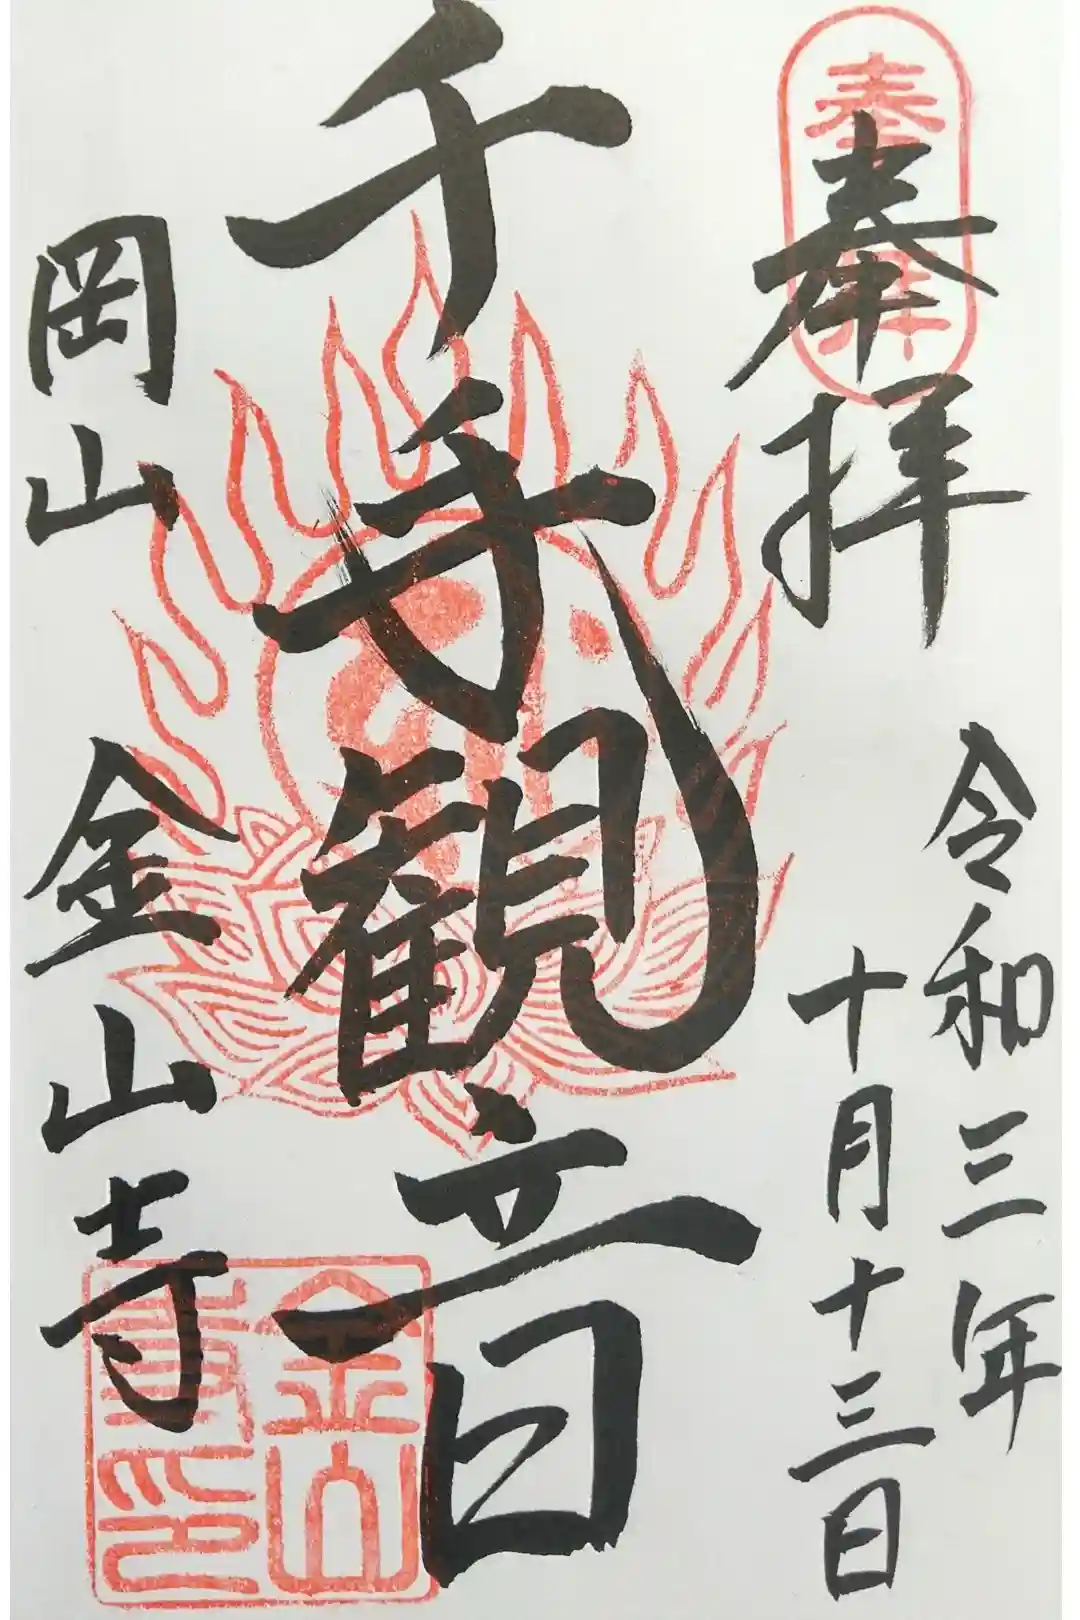 奉拝
奉拝
令和三年
十月十三日
千手観音
岡山 金山寺
金山
寺印